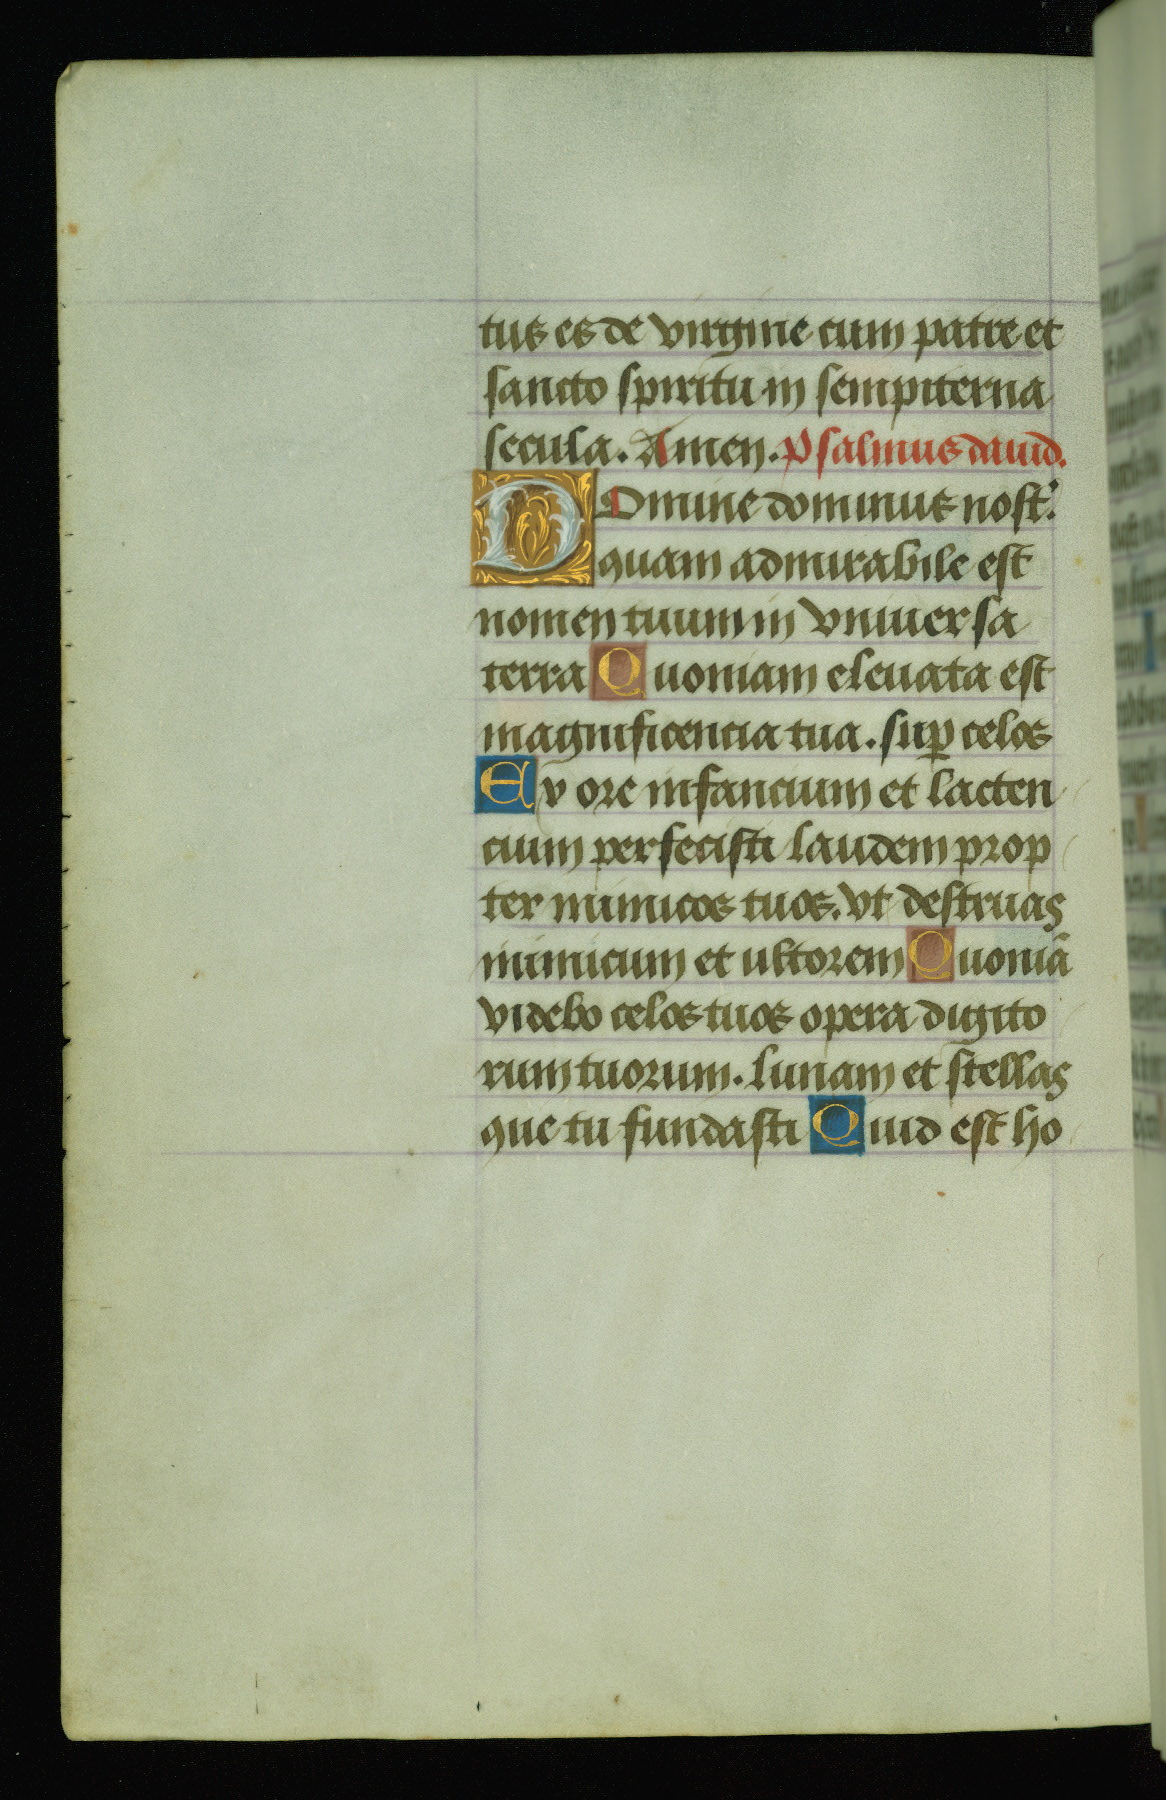 tus es de virgine cum patre et
sancto spiritu in sempiterna
secula. Amen. Psalmus dauid.
DOmine dominus nost:
quam admirabile est
nomen tuum in vniuersa
terra Quoniam eleuata est
magnificencia tua. sup celos
Ex ore infancium et lacten
cium perfecisti laudem prop
ter inimicos tuos. vt destruas
inimicum et ultorem Quoniã
videbo celos tuos opera digito
rum tuorum. lunam et stellas
que tu fundasti Quid est ho